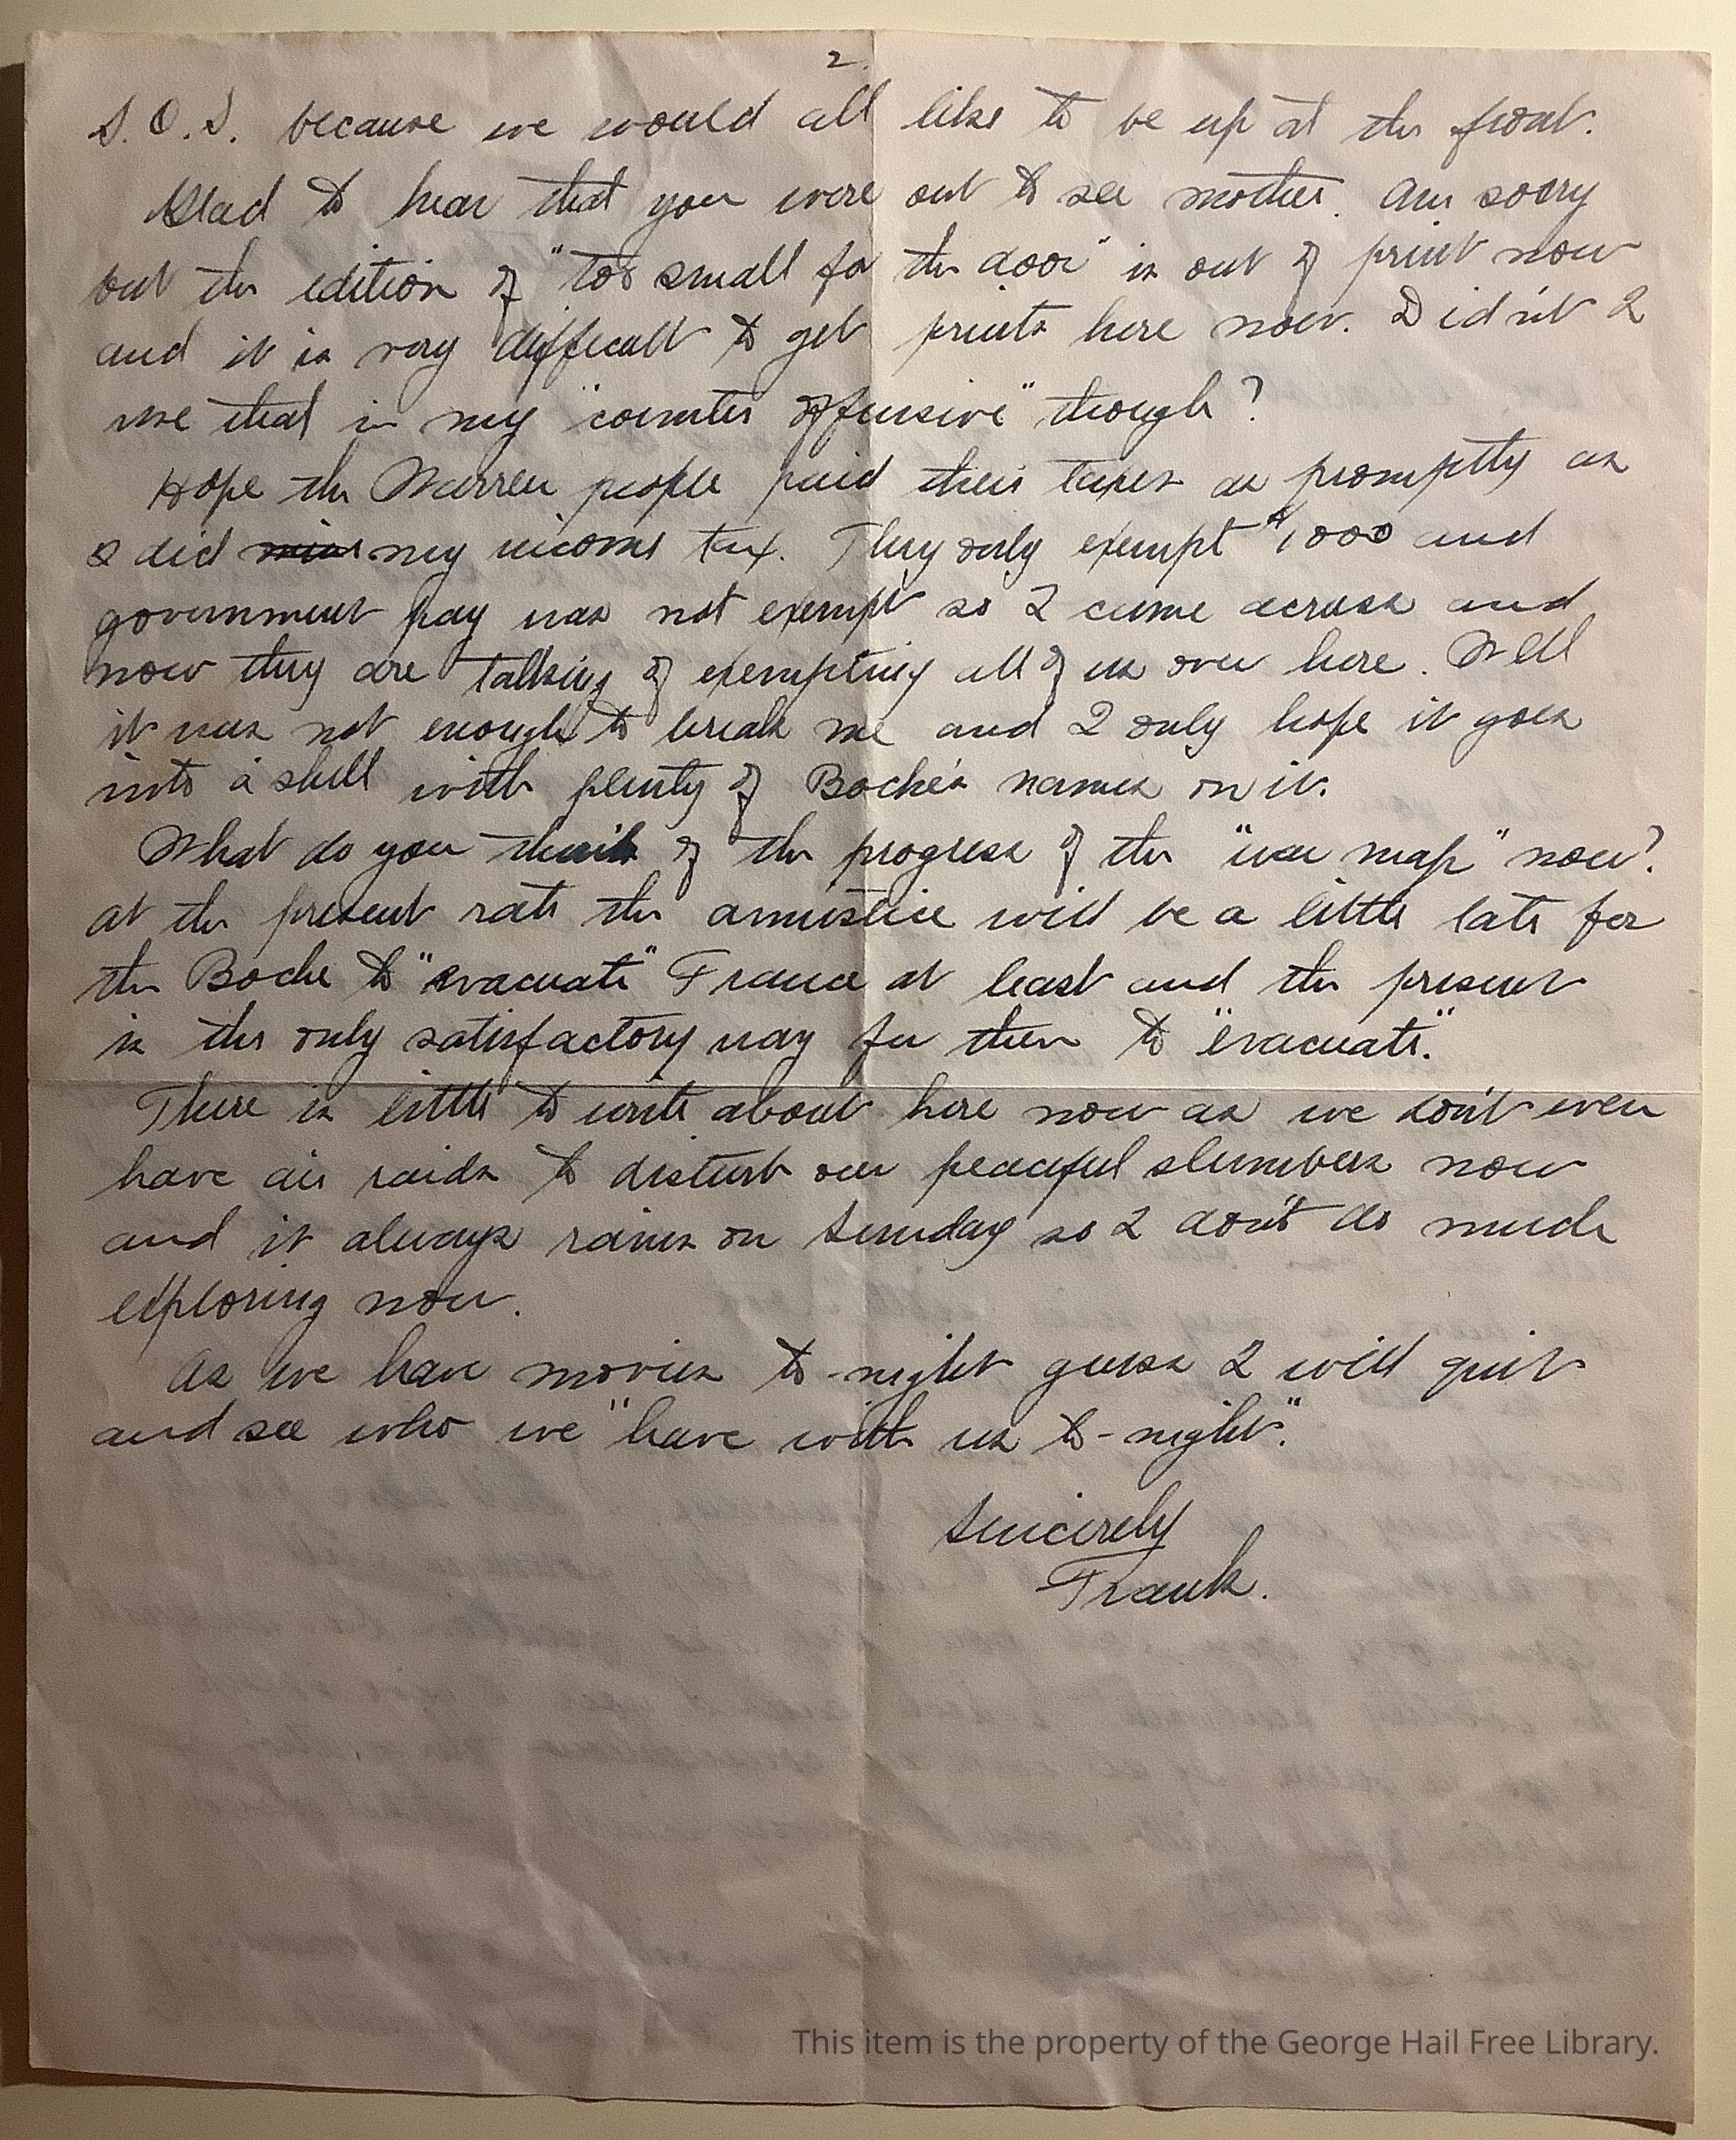 2.
S. O. S. because we would all like to be up at the front.
Glad to hear that you were out to see mother. Am sorry
but the edition of "too small for the door" is out of print now
and it is very difficult to get prints here now. Didn't I
use that in my "counter offensive" though?
Hope the Warren people paid their taxes as promptly as
I did my income tax. They only exempt $1,000 and
government pay was not exempt so I came across and
now they are talking of exempting all of us over here. Well
it was not enough to break me and I only hope it goes
into a shell with plenty of Boche's names on it.
What do you think of the progress of the "war map" now?
at the present rate the armistice will be a little late for
the Boche to "evacuate" France at least and the present
is the only satisfactory way for them to "evacuate".
There is little to write about here now as we don't even
have air raids to disturb our peaceful slumbers now
and it always rains on Sunday so I don't do much
exploring now.
As we have movies to-night guess I will quit
and see who we "have with us to-night".
Sincerely
Frank.
This item is the property of the George Hail Free Library.